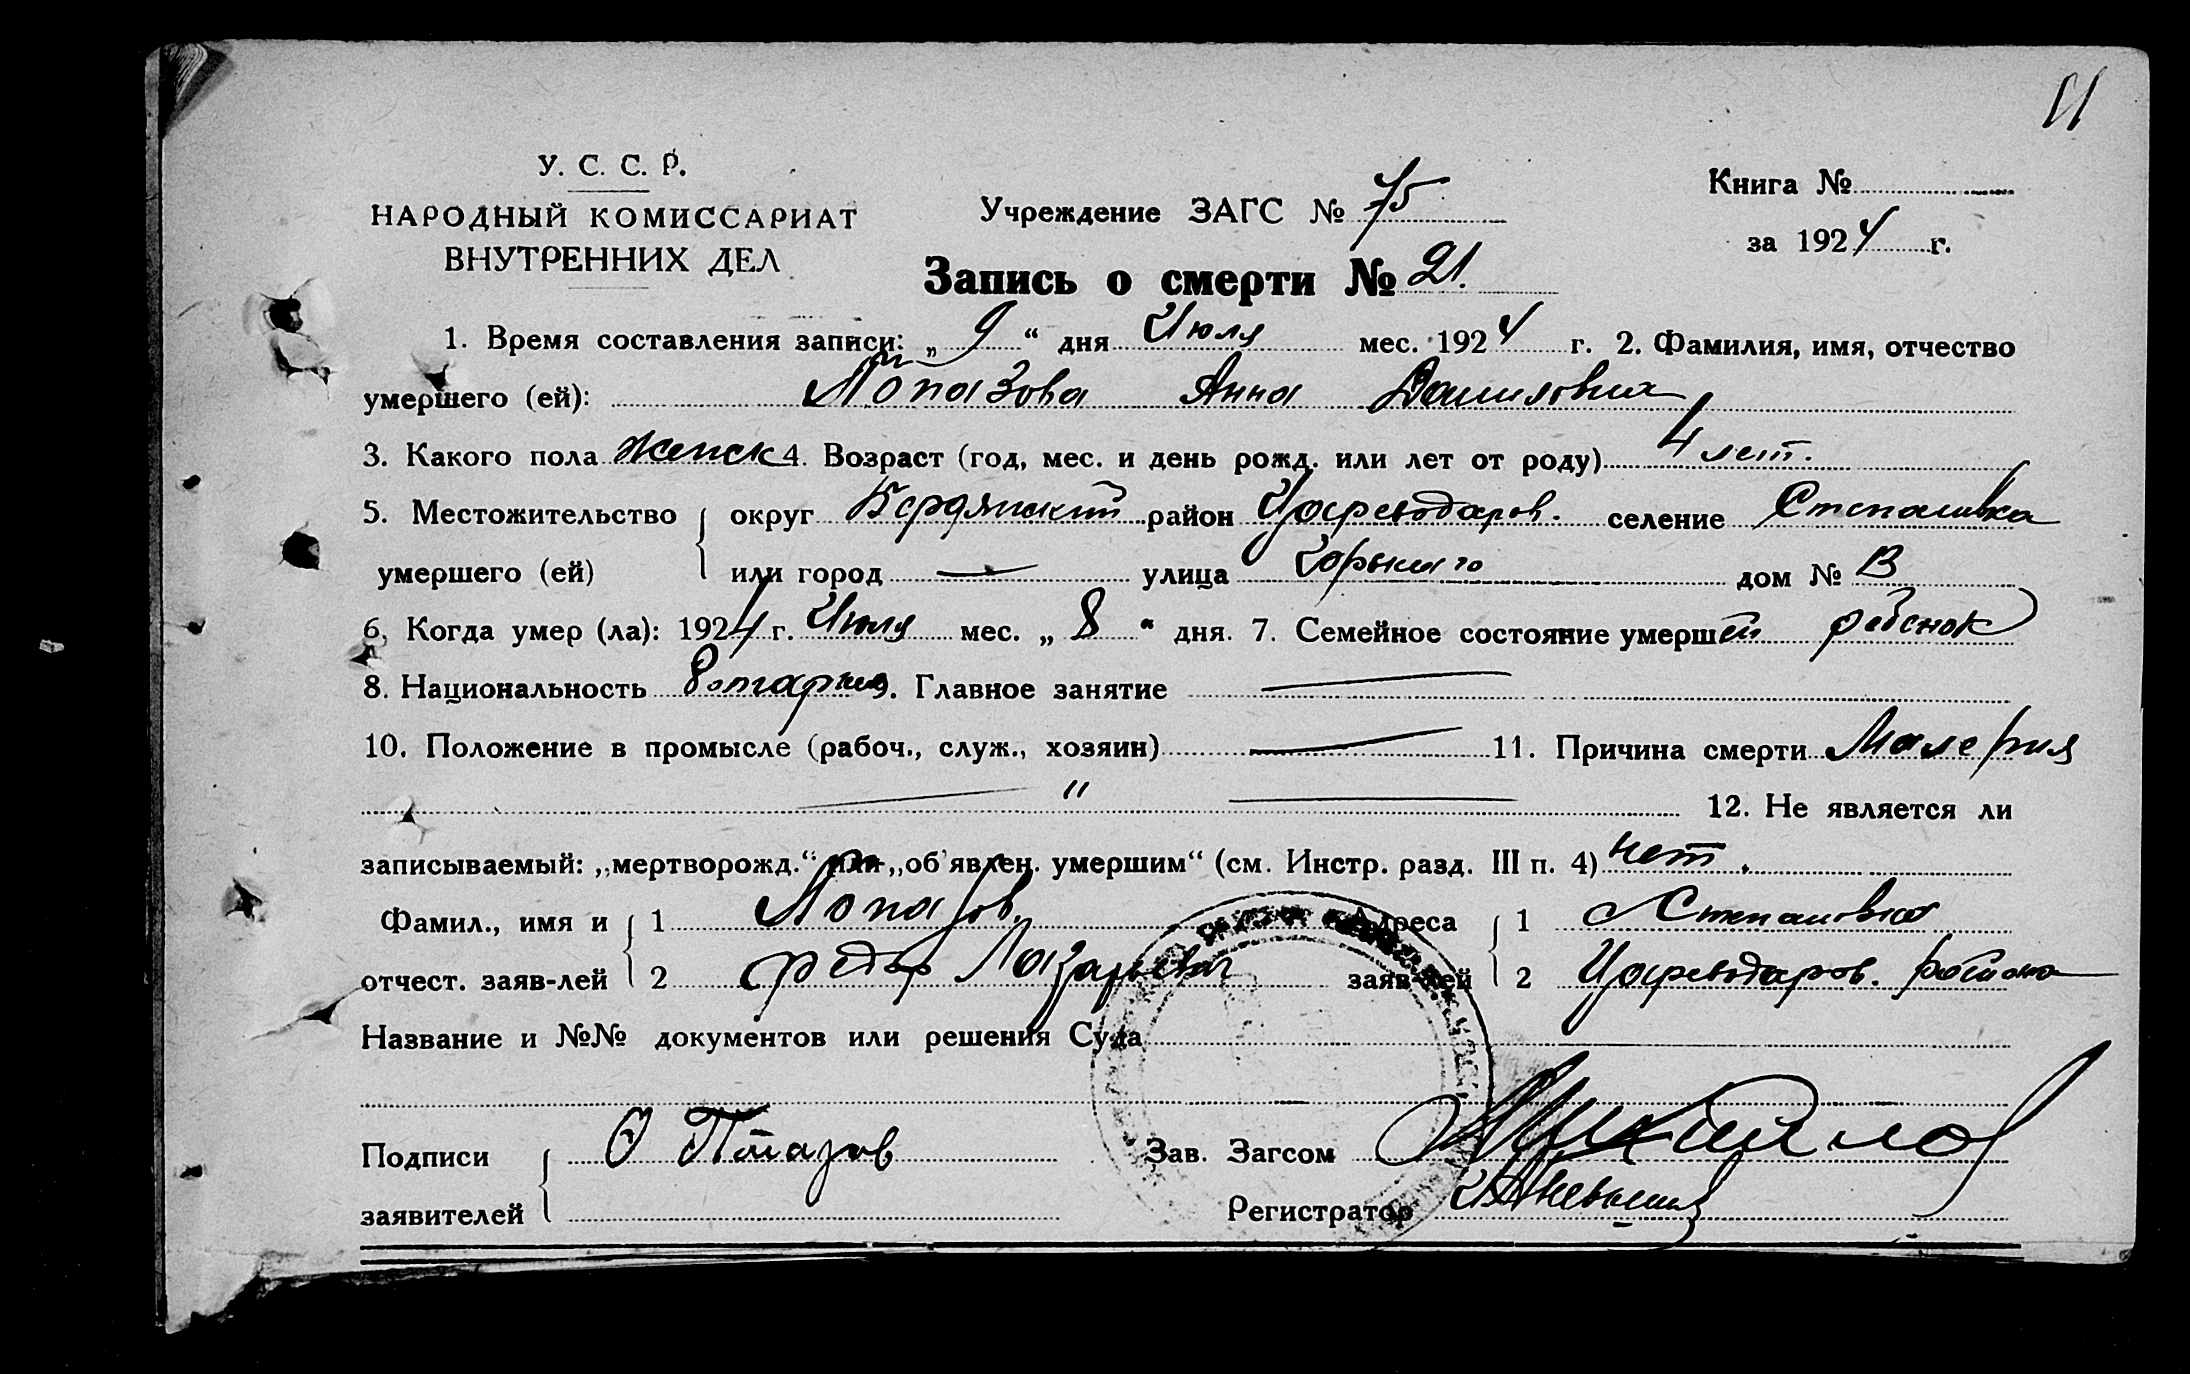 11
У. С. С. Р.
НАРОДНЫЙ КОМИССАРИАТ
ВНУТРЕННИХ ДЕЛ
Учреждение ЗАГС № 75
Книга №
за 1924 г.
Запись о смерти № 21.
1. Время составления записи: „ 9 “ дня Июля мес. 1924 г. 2. Фамилия, имя, отчество
умершего (ей): Анна Даниловна
3. Какого пола женск 4. Возраст (год, мес. и день рожд. или лет от роду) 4 лет.
5. Местожительство округ Бердянский район Цареводаров. селение Степановка
умершего (ей) или город — улица Горького дом № В
6. Когда умер (ла): 1924 г. Июля мес. „ 8 “ дня. 7. Семейное состояние умершей ребенок
8. Национальность 9. Главное занятие —
10. Положение в промысле (рабоч., служ., хозяин) — 11. Причина смерти Малерия
— " — 12. Не является ли
записываемый: „мертворожд.“ или „об'явлен. умершим“ (см. Инстр. разд. III п. 4) нет.
Фамил., имя и 1 Адреса 1 Степановка
отчест. заяв-лей 2 Федор Лазарьевич заяв-лей 2 Цареводаров. района
Название и №№ документов или решения Суда
Подписи Зав. Загсом
заявителей Регистратор